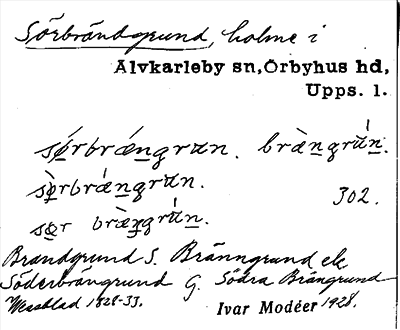 Sörbrändgrund, holme i
Älvkarleby sn, Örbyhus hd,
Upps. l.
sǿrbrǽngrun. brængrún.
sørbrǽngrun. 302.
sør brængrún.
Brandgrund S. Bränngrund ek
Söderbrängrund G. Södra Brängrund
Wessblad 1828-33. Ivar Modéer 1928.